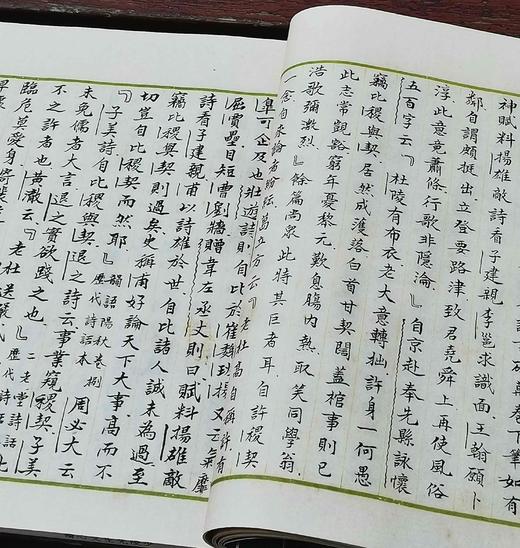 破萬卷下筆如有
神賦料揚雄敵詩看子建親李邕求識面王翰願卜
鄰自謂頗挺出立登要路津致君堯舜上再使風俗
淳此意竟蕭條行歌非隱淪』自京赴奉先縣詠懷
五百字云『杜陵有布衣老大意轉拙許身一何愚
竊比稷與契居然成濩落白首甘契闊蓋棺事則已
此志常覬豁窮年憂黎元歎息腸內熱取笑同學翁
浩歌彌激烈』餘篇尚衆此特其巨者耳自許稷契
一念自來論者紛紜葛立方云『老杜高自稱許有
臯可企及也壯遊詩則自比於崔魏班揚又云氣靡
屈賈壘目短曹劉牆贈韋左丞丈則曰賦料揚雄敵
詩看子建親甫以詩雄於世自比諸人誠未為過至
竊比稷與契則過矣史稱甫好論天下大事高而不
切豈自比稷契而然耶』韻語陽秋卷捌歷代詩話本周必大云
『子美詩自比稷與契退之詩云事業窺稷契子美
未免儒者大言退之實欲踐之也』二老堂詩話歷代詩話
不之許者也黃澈云『老杜送嚴
臨危莫愛身寄裴